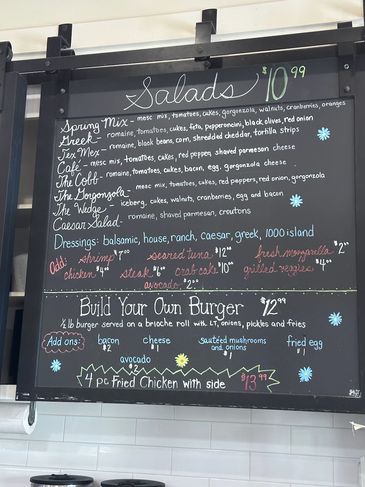 Salads $10 99
Spring Mix - mesc mix, tomatoes, cukes, gorgonzola, walnuts, cranberries, oranges
Greek - romaine, tomatoes, cukes, feta, pepperoncini, black olives, red onion
Tex Mex - romaine, black beans, corn, shredded cheddar, tortilla strips
Café - mesc mix, tomatoes, cukes, red pepper, shaved parmesan cheese
The Cobb - romaine, tomatoes, cukes, bacon, egg, gorgonzola cheese
The Gorgonzola - mesc mix, tomatoes, cukes, red peppers, red onion, gorgonzola
The Wedge - iceberg, cukes, walnuts, cranberries, egg and bacon
Caesar Salad - romaine, shaved parmesan, croutons
Dressings: balsamic, house, ranch, caesar, greek, 1000 island
Add: shrimp $7 00 seared tuna $12 00 fresh mozzarella $2
chicken $4 00 steak $6 00 crab cake $10 00 grilled veggies $4
avocado $2 00
Build Your Own Burger $12 99
1/2 lb burger served on a brioche roll with LT, onions, pickles and fries
Add ons: bacon $2 cheese $1 sautéed mushrooms and onions $1 fried egg $1
avocado $2
4 pc Fried Chicken with side $13 99